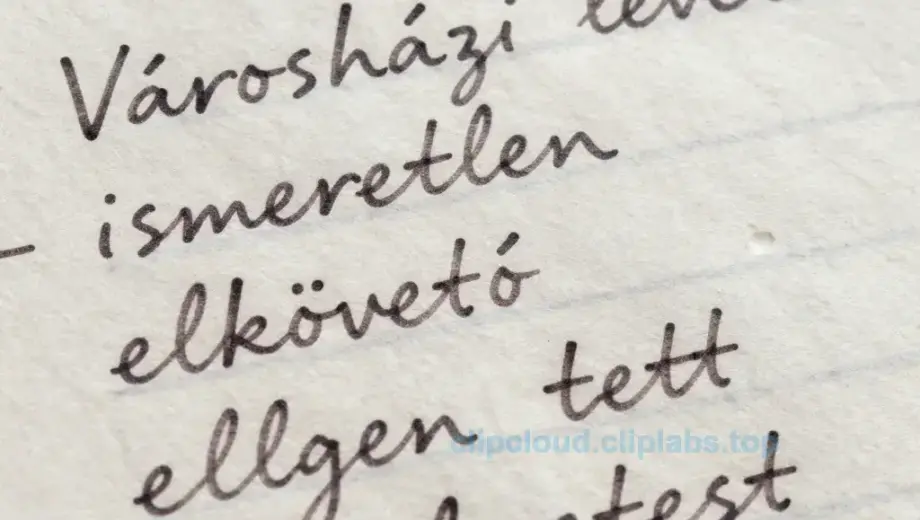 Városházi
– ismeretlen
elkövetó
ellgen tett
clipcloud.cliplabs.top